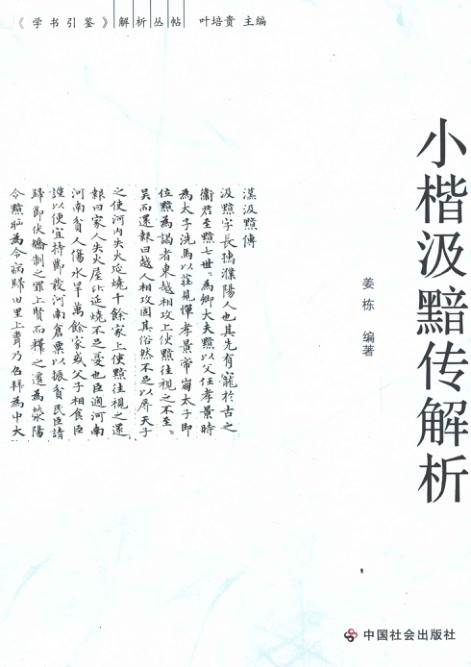 《学书引鉴》解析丛帖 叶培贵 主编
小楷汲黯传解析
姜栋 编著
漢汲黯傳
汲黯字長孺濮陽人也其先有寵於古之
衛君至黯七世〻為卿大夫黯以父任孝景時
為太子洗馬以莊見憚孝景帝崩太子即
位黯為謁者東越相攻上使黯往視之不至
吳而還報曰越人相攻固其俗然不足以辱天子
之使河內失火延燒千餘家上使黯往視之還
報曰家人失火屋比延燒不足憂也臣過河南
河南貧人傷水旱萬餘家或父子相食臣
謹以便宜持節發河南倉粟以振貧民臣請
歸節伏矯制之罪上賢而釋之遷為滎陽
令黯恥為令病歸田里上聞乃召拜為中大
中国社会出版社